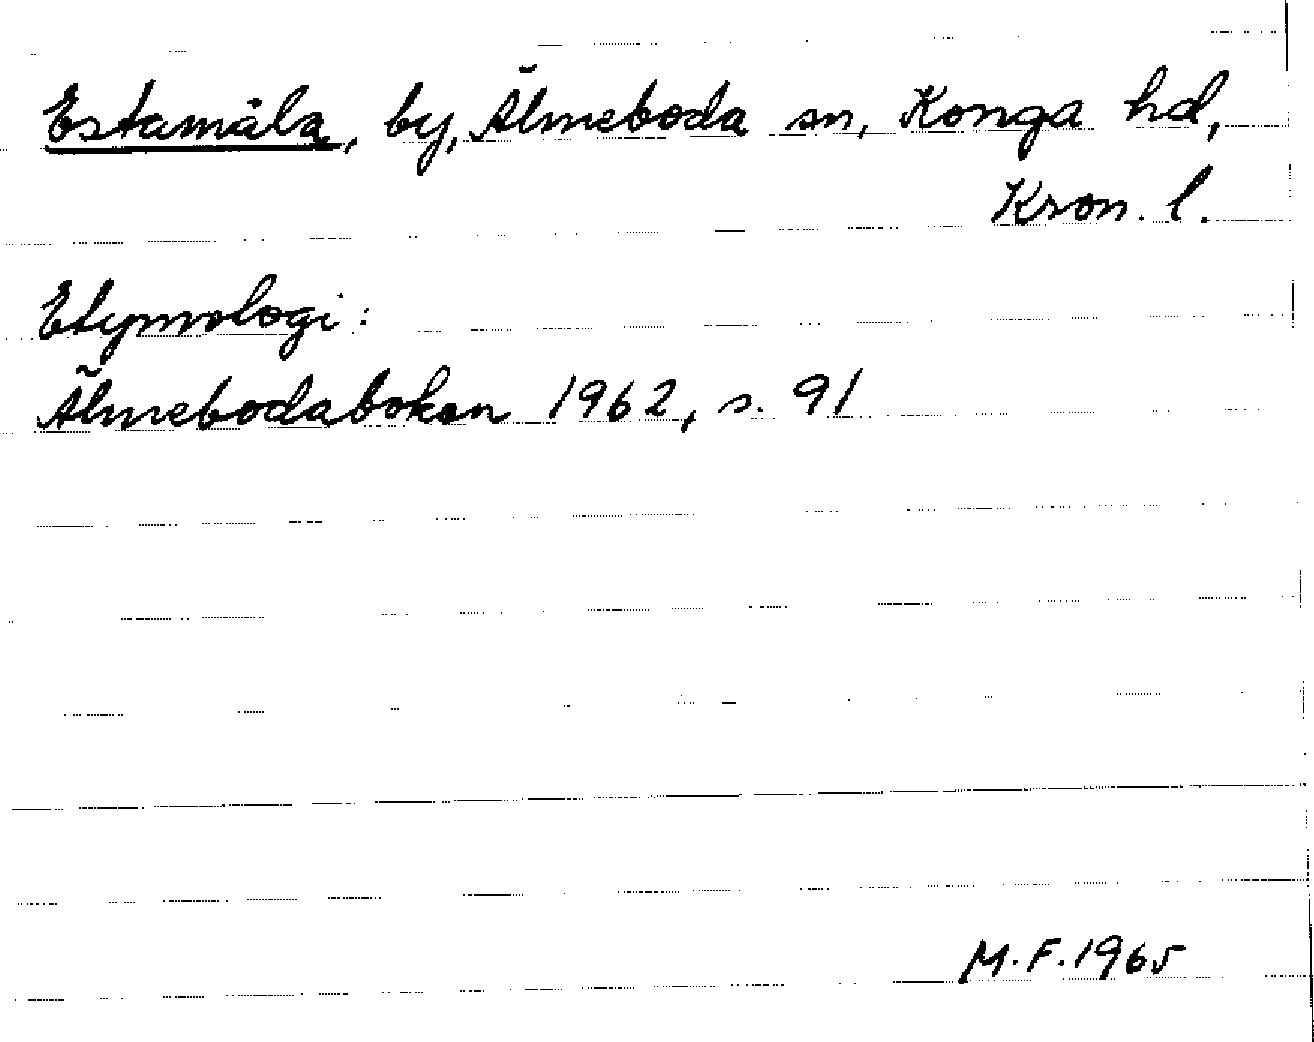 Estamåla, by, Älmeboda sn, Konga hd,
Kron. l.
Etymologi:
Älmebodaboken 1962, s. 91
M.F. 1965